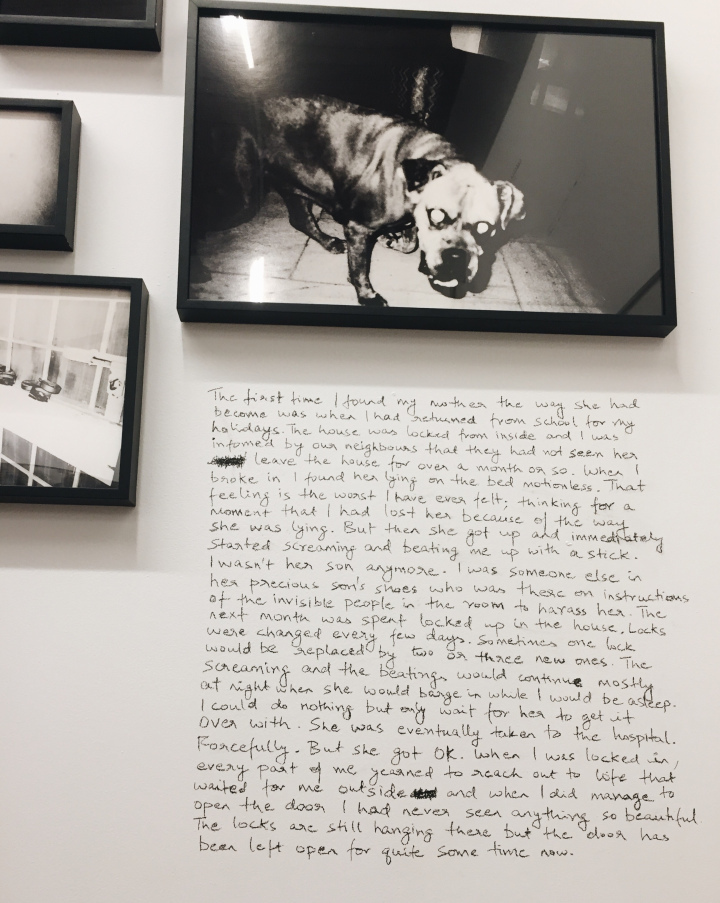 The first time I found my mother the way she had
become was when I had returned from school for my
holidays. The house was locked from inside and I was
infomed by our neighbours that they had not seen her
leave the house for over a month or so. When I
broke in I found her lying on the bed motionless. That
feeling is the worst I have ever felt; thinking for a
moment that I had lost her because of the way
she was lying. But then she got up and immediately
started screaming and beating me up with a stick.
I wasn't her son anymore. I was someone else in
her precious son's shoes who was there on instructions
of the invisible people in the room to harass her. The
next month was spent locked up in the house. Locks
were changed every few days. Sometimes one lock
would be replaced by two or three new ones. The
screaming and the beatings would continue mostly
at night when she would barge in while I would be asleep.
I could do nothing but only wait for her to get it
over with. She was eventually taken to the hospital.
Forcefully. But she got OK. When I was locked in,
every part of me yearned to reach out to life that
waited for me outside and when I did manage to
open the door I had never seen anything so beautiful.
The locks are still hanging there but the door has
been left open for quite some time now.